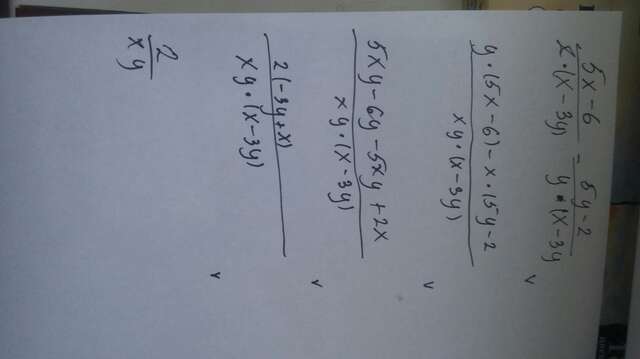 5x-6/x·(x-3y) - 5y-2/y·(x-3y
y·(5x-6)-x·(5y-2/xy·(x-3y) v
5xy-6y-5xy+2x/xy·(x-3y) v
2(-3y+x)/xy·(x-3y) v
2/xy v